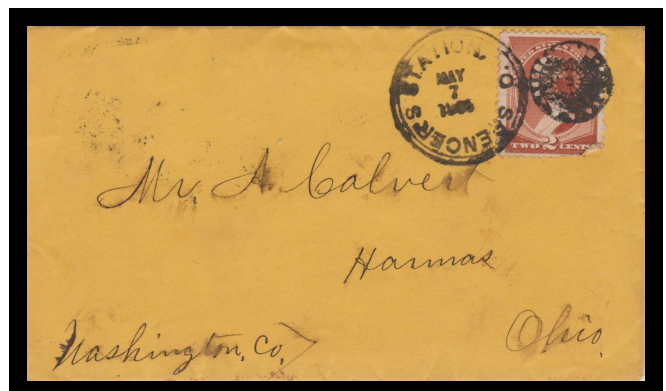 SPENCER'S STATION, O.
MAY
7
TWO 2 CENTS
Mr. A. Calvert
Harmas
Ohio,
Washington, Co,